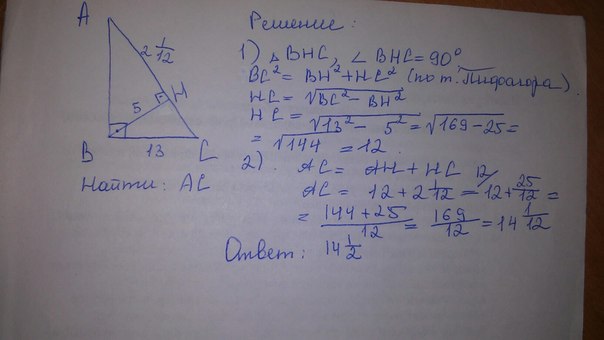 A
2 1/12
H
5
B
13
C
Найти: AC
Решение:
1) △ BHC, ∠ BHC = 90°
BC² = BH² + HC² (по т. Пифагора).
HC = √BC² - BH²
HC = √13² - 5² = √169 - 25 =
= √144 = 12.
2). AC = AH + HC
AC = 12 + 2 1/12 = 12 + 25/12 =
= 144 + 25/12 = 169/12 = 14 1/12
Ответ: 14 1/2